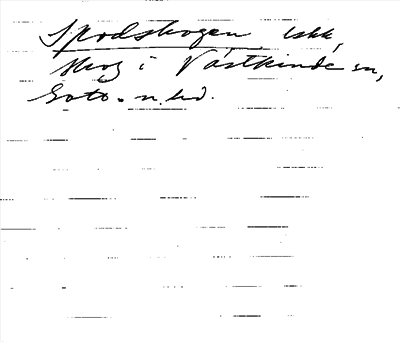 Spodskogen, uskh,
skog i Västkinde sn,
Gotl. n. hd.